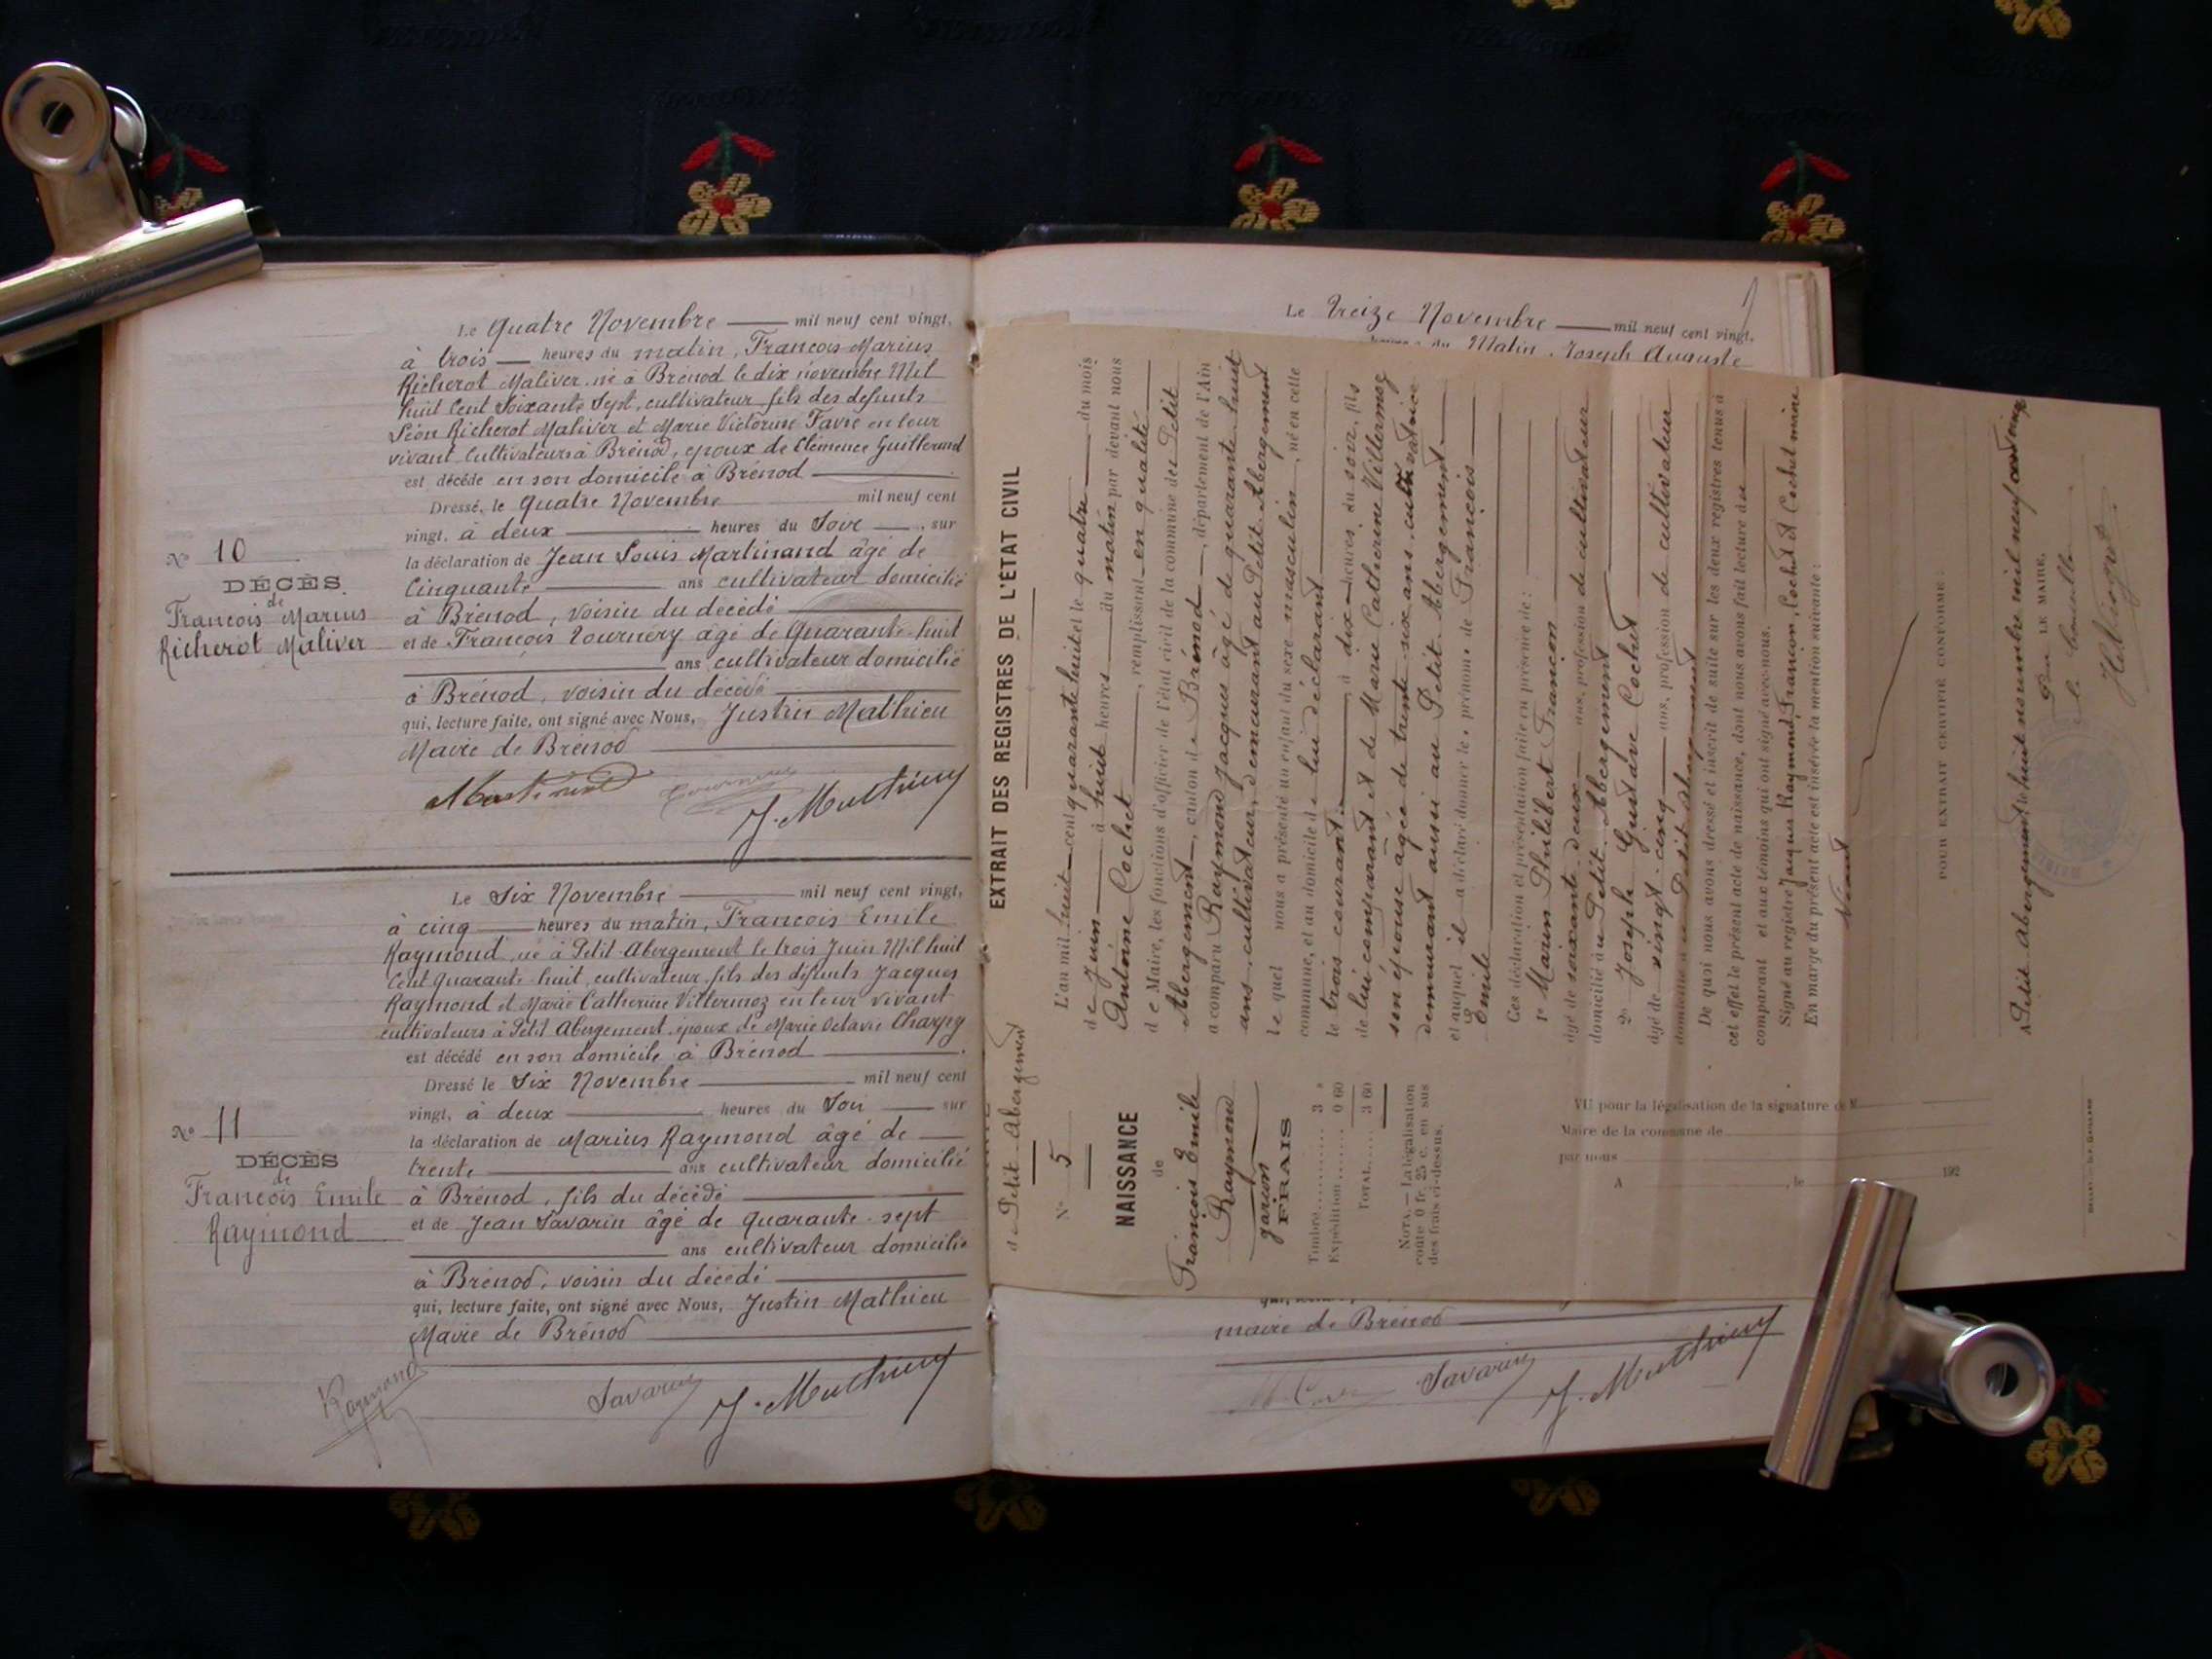 Le Quatre Novembre mil neuf cent vingt,
à trois heures du matin, François Marius
Richerot Maliver né à Brénod le dix novembre Mil
huit Cent Soixante Sept, cultivateur fils des défunts
Léon Richerot Maliver et Marie Victorine Favre en leur
vivant Cultivateurs à Brénod, époux de Clémence Guillermd
est décédé en son domicile à Brénod
Dressé, le Quatre Novembre mil neuf cent
vingt, à deux heures du Soir, sur
la déclaration de Jean Louis Martinand âgé de
Cinquante ans cultivateur domicilié
à Brénod, voisin du décédé
et de François Tournery âgé de Quarante-huit
ans cultivateur domicilié
à Brénod, voisin du décédé
qui, lecture faite, ont signé avec Nous, Justin Mathieu
Maire de Brénod
No 10
DÉCÈS
de
François Marius
Richerot Maliver
Martinand Tournery
J. Mathieu
Le Six Novembre mil neuf cent vingt,
à cinq heures du matin, François Emile
Raymond, né à Petit-Abergement le trois Juin Mil huit
Cent Quarante-huit, cultivateur, fils des défunts Jacques
Raymond et Marie Catherine Villermoz en leur vivant
cultivateurs à Petit Abergement, époux de Marie Octavie Charpy
est décédé en son domicile à Brénod
Dressé le Six Novembre mil neuf cent
vingt, à deux heures du Soir sur
la déclaration de Marius Raymond âgé de
trente ans cultivateur domicilié
à Brénod, fils du décédé
et de Jean Savarin âgé de quarante-sept
ans cultivateur domicilié
à Brénod, voisin du décédé
qui, lecture faite, ont signé avec Nous, Justin Mathieu
Maire de Brénod
No 11
DÉCÈS
de
François Emile
Raymond
Raymond Savarin J. Mathieu
Le Treize Novembre mil neuf cent vingt,
heures du Matin, Joseph Auguste
EXTRAIT DES REGISTRES DE L'ÉTAT CIVIL
de Petit-Abergement
No 5
NAISSANCE
de
François Emile
Raymond
garçon
FRAIS
Timbre 3 »
Expédition 0 60
TOTAL 3 60
NOTA. — La légalisation
coûte 0 fr. 25 c. en sus
des frais ci-dessus.
L'an mil huit cent quarante huit et le quatre du mois
de Juin à huit heures du matin par devant nous
Antoine Cochet, remplissant en qualité
de Maire, les fonctions d'officier de l'état civil de la commune de Petit
Abergement, canton de Brénod, département de l'Ain
a comparu Raymond Jacques âgé de quarante huit
ans, cultivateur, demeurant au Petit Abergement
lequel nous a présenté un enfant du sexe masculin, né en cette
commune, et au domicile de lui déclarant
le trois courant à dix heures du soir, fils
de lui comparant et de Marie Catherine Villermoz
son épouse âgée de trente-six ans, cultivatrice
demeurant aussi au Petit Abergement
et auquel il a déclaré donner les prénoms de François
Emile
Ces déclaration et présentation faite en présence de :
1º Marin Philibert Francon
âgé de soixante deux ans, profession de cultivateur
domicilié au Petit Abergement
2º Joseph Gustave Cochet
âgé de vingt-cinq ans, profession de cultivateur
domicilié au Petit Abergement
De quoi nous avons dressé et inscrit de suite sur les deux registres tenus à
cet effet le présent acte de naissance, dont nous avons fait lecture au
comparant et aux témoins qui ont signé avec nous.
Signé au registre Jacques Raymond, Francon, Cochet et Cochet maire
En marge du présent acte est insérée la mention suivante :
Néant
POUR EXTRAIT CERTIFIÉ CONFORME :
A Petit Abergement le huit novembre mil neuf cent vingt
LE MAIRE,
VU pour la légalisation de la signature de M
Maire de la commune de
par nous
A , le 192
maire de Brénod
Savarin J. Mathieu